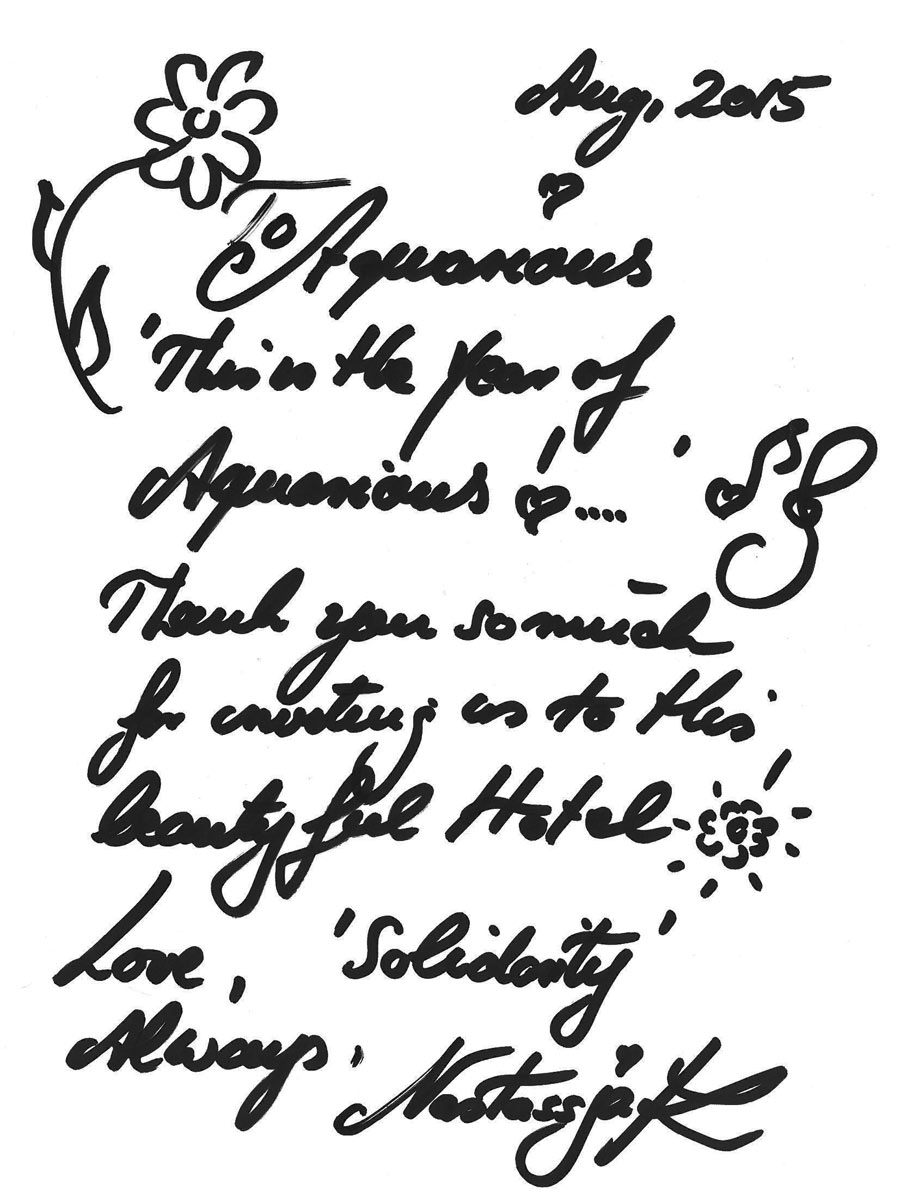 Aug, 2015
To Aquarious
'This is the Year of
Aquarious! ....'
Thank you so much
for inviting us to this
beautyful Hotel
Love, 'Solidarity'
Always, Nastassja K